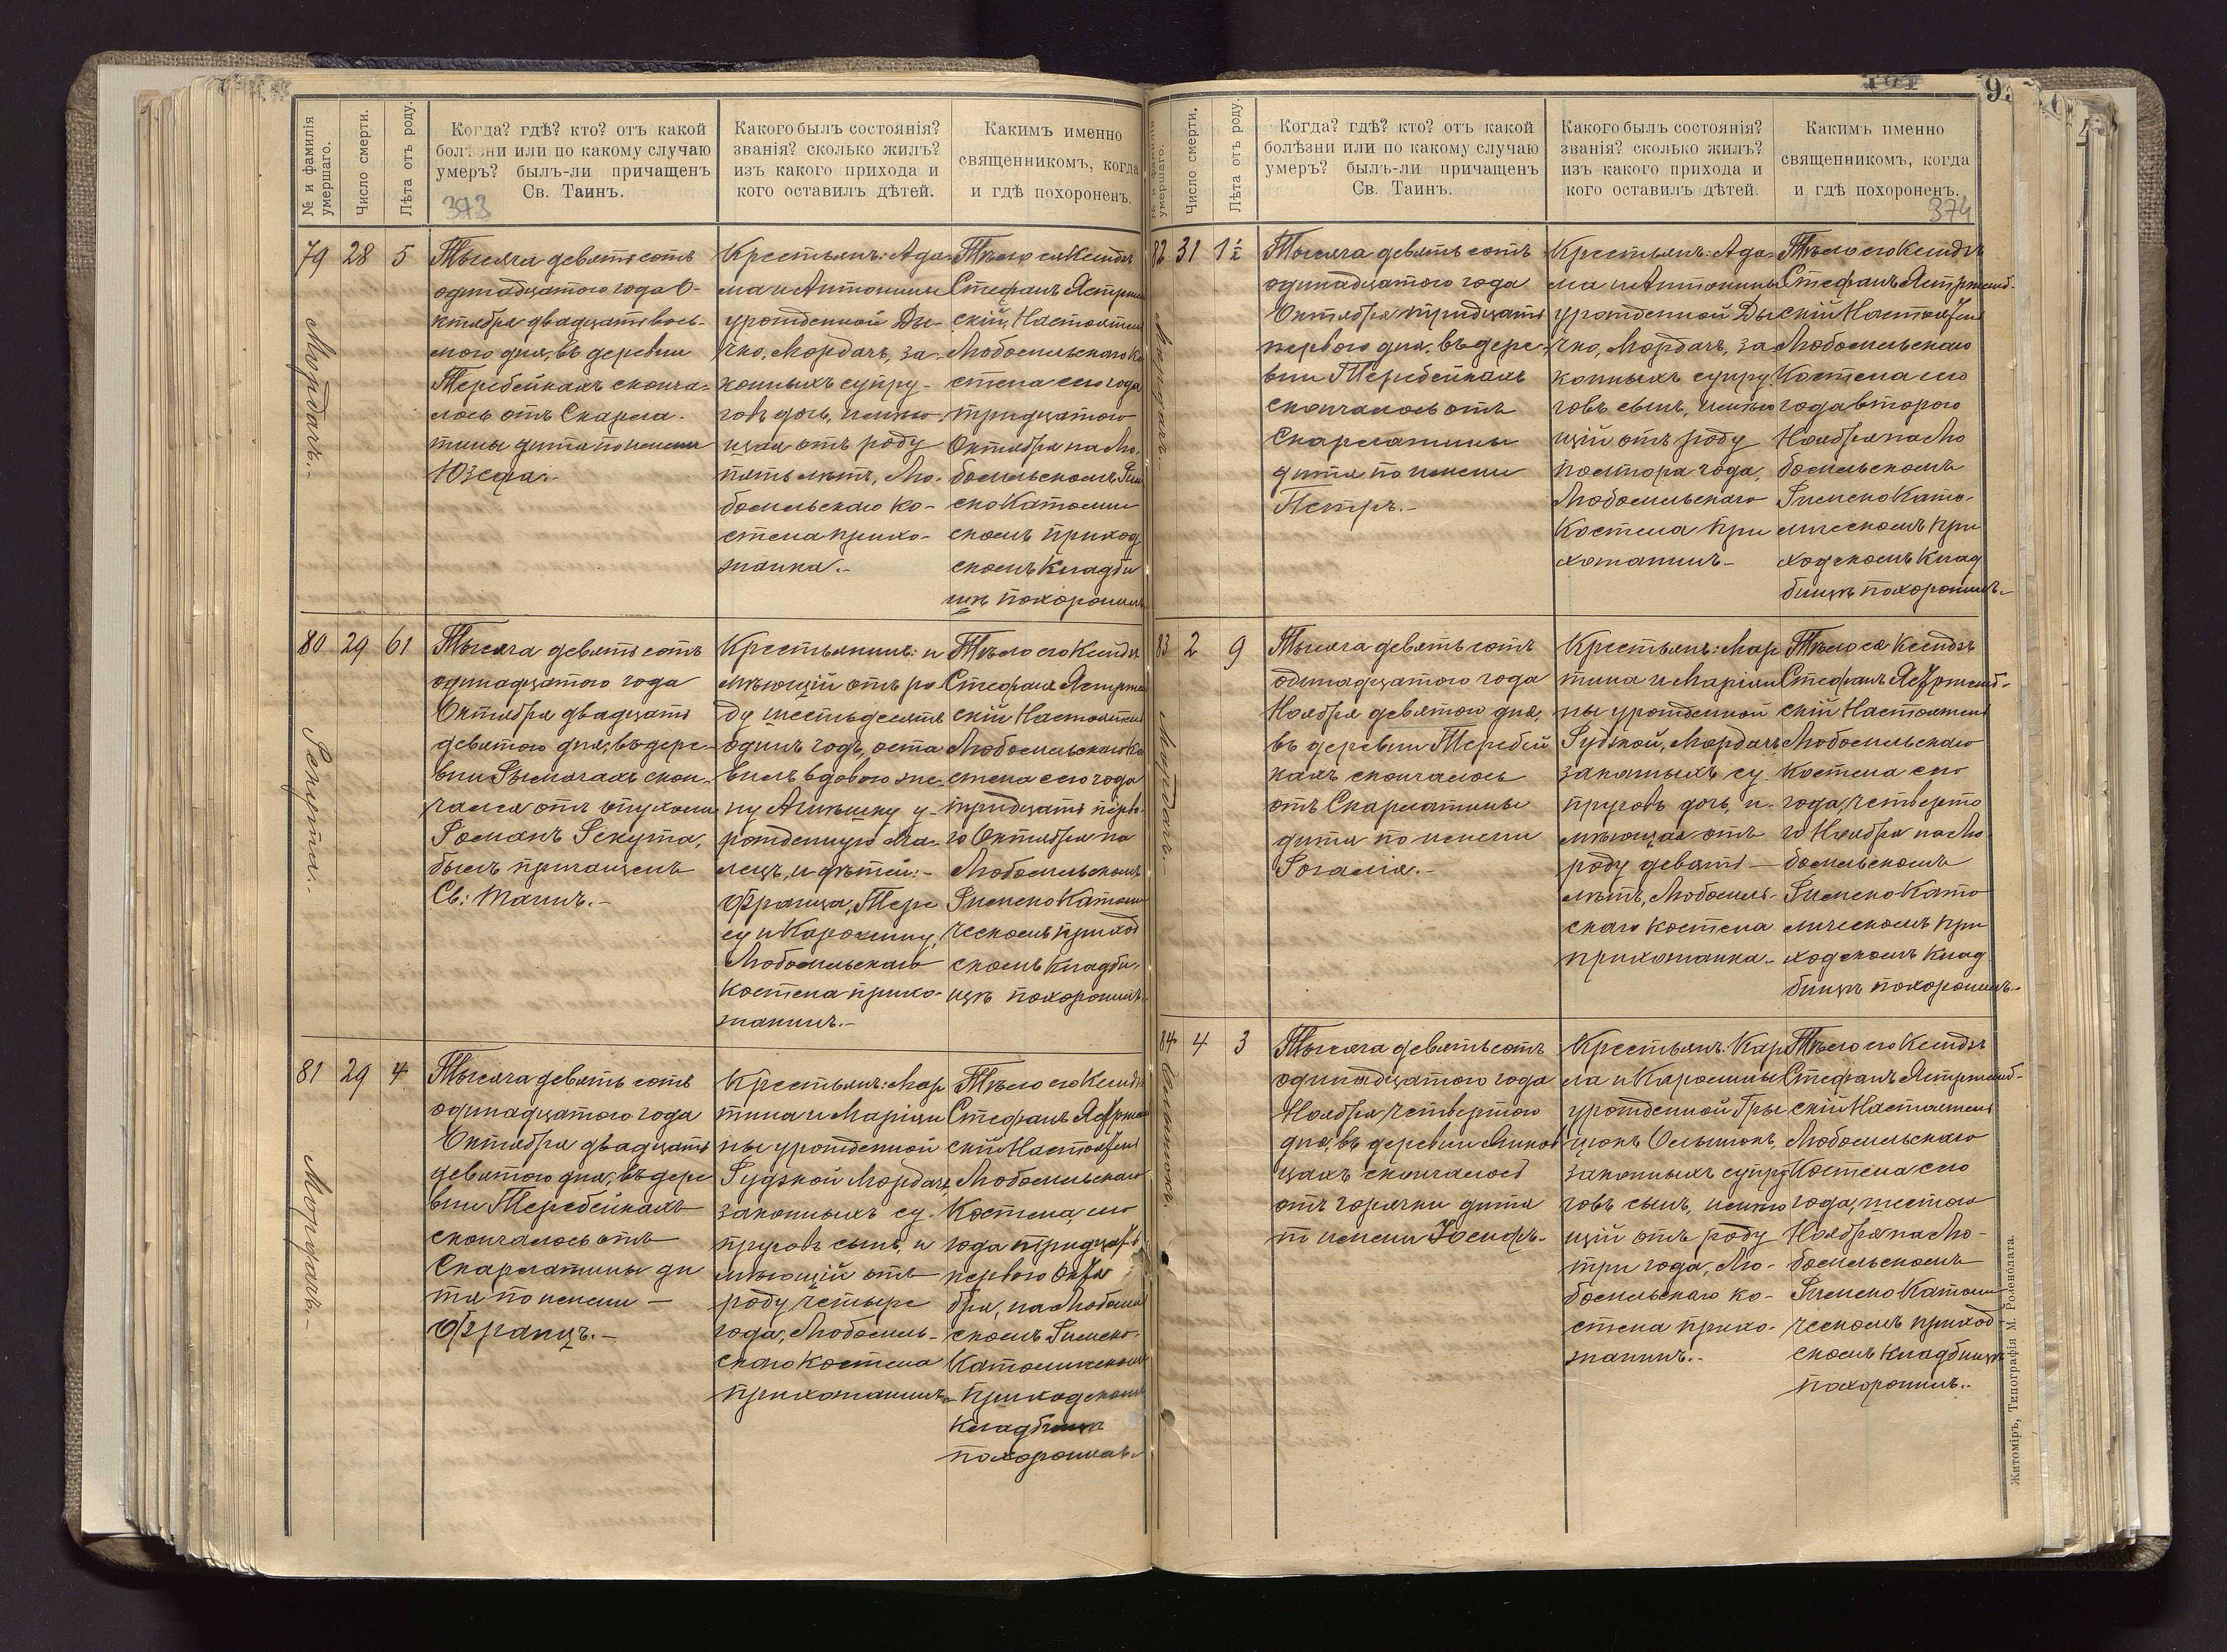 № и фамилія умершаго.
Число смерти.
Лѣта отъ роду.
Когда? гдѣ? кто? отъ какой
болѣзни или по какому случаю
умеръ? былъ-ли причащенъ
Св. Таинъ.
373
Какого былъ состоянія?
званія? сколько жилъ?
изъ какого прихода и
кого оставилъ дѣтей.
Какимъ именно
священникомъ, когда
и гдѣ похороненъ.
79
Мордачъ.-
28
5
Тысяча девятьсотъ
одинадцатого года О-
ктября двадцать вось-
мого дня, въ деревни
Теребейкахъ сконча-
лось отъ Скарла-
тины дитя по имени
Юзефа.-
Крестьянъ: Ада-
ма и Антонины
урожденной Ды-
чко, Мордачъ, за-
конныхъ супру-
говъ дочь, имѣю-
щая отъ роду
пять лѣтъ, Лю-
бомльскаго ко-
стела прихо-
жанка.-
Тѣло ея Ксендзъ
Стефанъ
скій, Настоятель
Любомльскаго Ко
стела сего года
тридцатого
Октября на Лю-
бомльскомъ Рим
ско Католи
скомъ приход
скомъ Кладби
щѣ похоронилъ
80
Секута.
29
61
Тысяча девятьсотъ
одинадцатого года
Октября двадцать
девятого дня, въ дере-
вни Рымачахъ скон-
чался отъ опухоли
Романъ Секута,
былъ причащенъ
Св: Таинъ.-
Крестьянинъ: и
мѣющій отъ ро
ду шестьдесятъ
одинъ годъ, оста
вилъ вдовою же-
ну Агнѣшку у-
рожденную Ма-
лецъ, и дѣтей:-
Франца, Тере
су и Каролину,
Любомльскаго
костела прихо-
жанинъ.-
Тѣло его Ксендзъ
Стефанъ
скій Настоятель
Любомльскаго Ко
стела сего года
тридцать перво-
го Октября на
Любомльскомъ
Римско Католи
ческомъ приход
скомъ кладби-
щѣ похоронилъ.
81
Мордачъ.-
29
4
Тысяча девять сотъ
одинадцатого года
Октября двадцать
девятого дня, въ дере
вни Теребейкахъ
скончалось отъ
Скарлатины ди
тя по имени —
Францъ.-
Крестьянъ: Мар
тина и Маріян
ны урожденной
Гудзкой, Мордачъ,
законныхъ су-
пруговъ сынъ, и
мѣющій отъ
роду четыре
года, Любомль-
скаго костела
прихожанинъ.
Тѣло его Ксендзъ
Стефанъ
скій Настоятель
Любомльскаго
Костела, сего
года тридцать
первого Октя
бря, на Любомль
скомъ Римско-
Католическомъ
приходскомъ
Кладбищѣ
похоронилъ.
Когда? гдѣ? кто? отъ какой
болѣзни или по какому случаю
умеръ? былъ-ли причащенъ
Св. Таинъ.
Какого былъ состоянія?
званія? сколько жилъ?
изъ какого прихода и
кого оставилъ дѣтей.
Какимъ именно
священникомъ, когда
и гдѣ похороненъ.
374
умершаго.
Число смерти.
Лѣта отъ роду.
82
Мордачъ.
31
1½
Тысяча девять сотъ
одинадцатого года
Октября тридцать
первого дня, въ дере-
вни Теребейкахъ
скончалось отъ
Скарлатины
дитя по имени
Петръ.-
Крестьянъ: Ада-
ма и Антонины
урожденной Ды
чко, Мордачъ, за
конныхъ супру-
говъ сынъ, имѣю
щій отъ роду
полтора года,
Любомльскаго
Костела при
хожанинъ.-
Тѣло его Ксендзъ
Стефанъ Ястржемб-
скій Настоятель
Любомльскаго
Костела сего
года второго
Ноября на Лю
бомльскомъ
Римско Като-
лическомъ при
ходскомъ Клад
бищѣ похоронилъ.-
83
Мордачъ.-
2
9
Тысяча девять сотъ
одинадцатого года
Ноября девятого дня,
въ деревни Теребей
кахъ скончалось
отъ Скарлатины
дитя по имени
Розалія.-
Крестьянъ: Мар
тина и Маріян
ны урожденной
Гудзкой, Мордачъ
законныхъ су-
пруговъ дочь, и-
мѣющая отъ
роду девять —
лѣтъ, Любомль-
скаго костела
прихожанка.-
Тѣло ея Ксендзъ
Стефанъ Ястржемб-
скій Настоятель
Любомльскаго
костела сего
года, четверто
го Ноября на Лю-
бомльскомъ
Римско Като
лическомъ при
ходскомъ Клад
бищѣ похоронилъ.-
84
4
3
Тысяча девятьсотъ
одинадцатого года
Ноября четвертого
дня, въ деревни
цахъ скончалось
отъ горячки дитя
по имени Іосифъ.-
Крестьянъ: Кар
ла и Каролины
урожденной
законныхъ супру
говъ сынъ, имѣю
щій отъ роду
три года, Лю-
бомльскаго ко-
стела прихо-
жанинъ.-
Тѣло его Ксендзъ
Стефанъ Ястржемб-
скій Настоятель
Любомльскаго
Костела сего
года, шестого
Ноября на Лю-
бомльскомъ
Римско Католи
ческомъ приход
скомъ кладбищѣ
похоронилъ.-
Житоміръ, Типографія М. Розенблата.